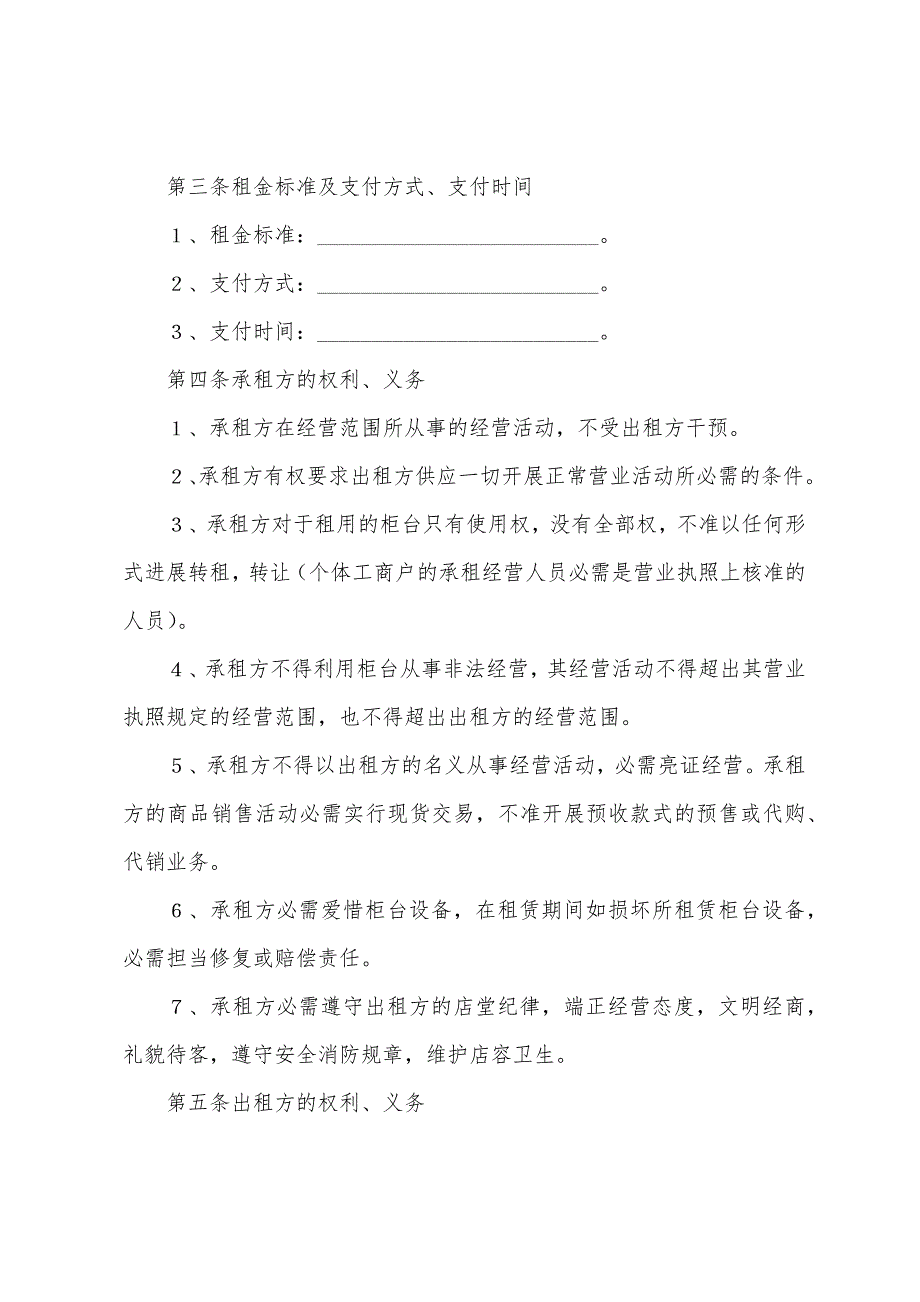 第三条租金标准及支付方式、支付时间
１、租金标准：__________________________。
２、支付方式：__________________________。
３、支付时间：__________________________。
第四条承租方的权利、义务
１、承租方在经营范围所从事的经营活动，不受出租方干预。
２、承租方有权要求出租方供应一切开展正常营业活动所必需的条件。
３、承租方对于租用的柜台只有使用权，没有全部权，不准以任何形
式进展转租，转让（个体工商户的承租经营人员必需是营业执照上核准的
人员）。
４、承租方不得利用柜台从事非法经营，其经营活动不得超出其营业
执照规定的经营范围，也不得超出出租方的经营范围。
５、承租方不得以出租方的名义从事经营活动，必需亮证经营。承租
方的商品销售活动必需实行现货交易，不准开展预收款式的预售或代购、
代销业务。
６、承租方必需爱惜柜台设备，在租赁期间如损坏所租赁柜台设备，
必需担当修复或赔偿责任。
７、承租方必需遵守出租方的店堂纪律，端正经营态度，文明经商，
礼貌待客，遵守安全消防规章，维护店容卫生。
第五条出租方的权利、义务